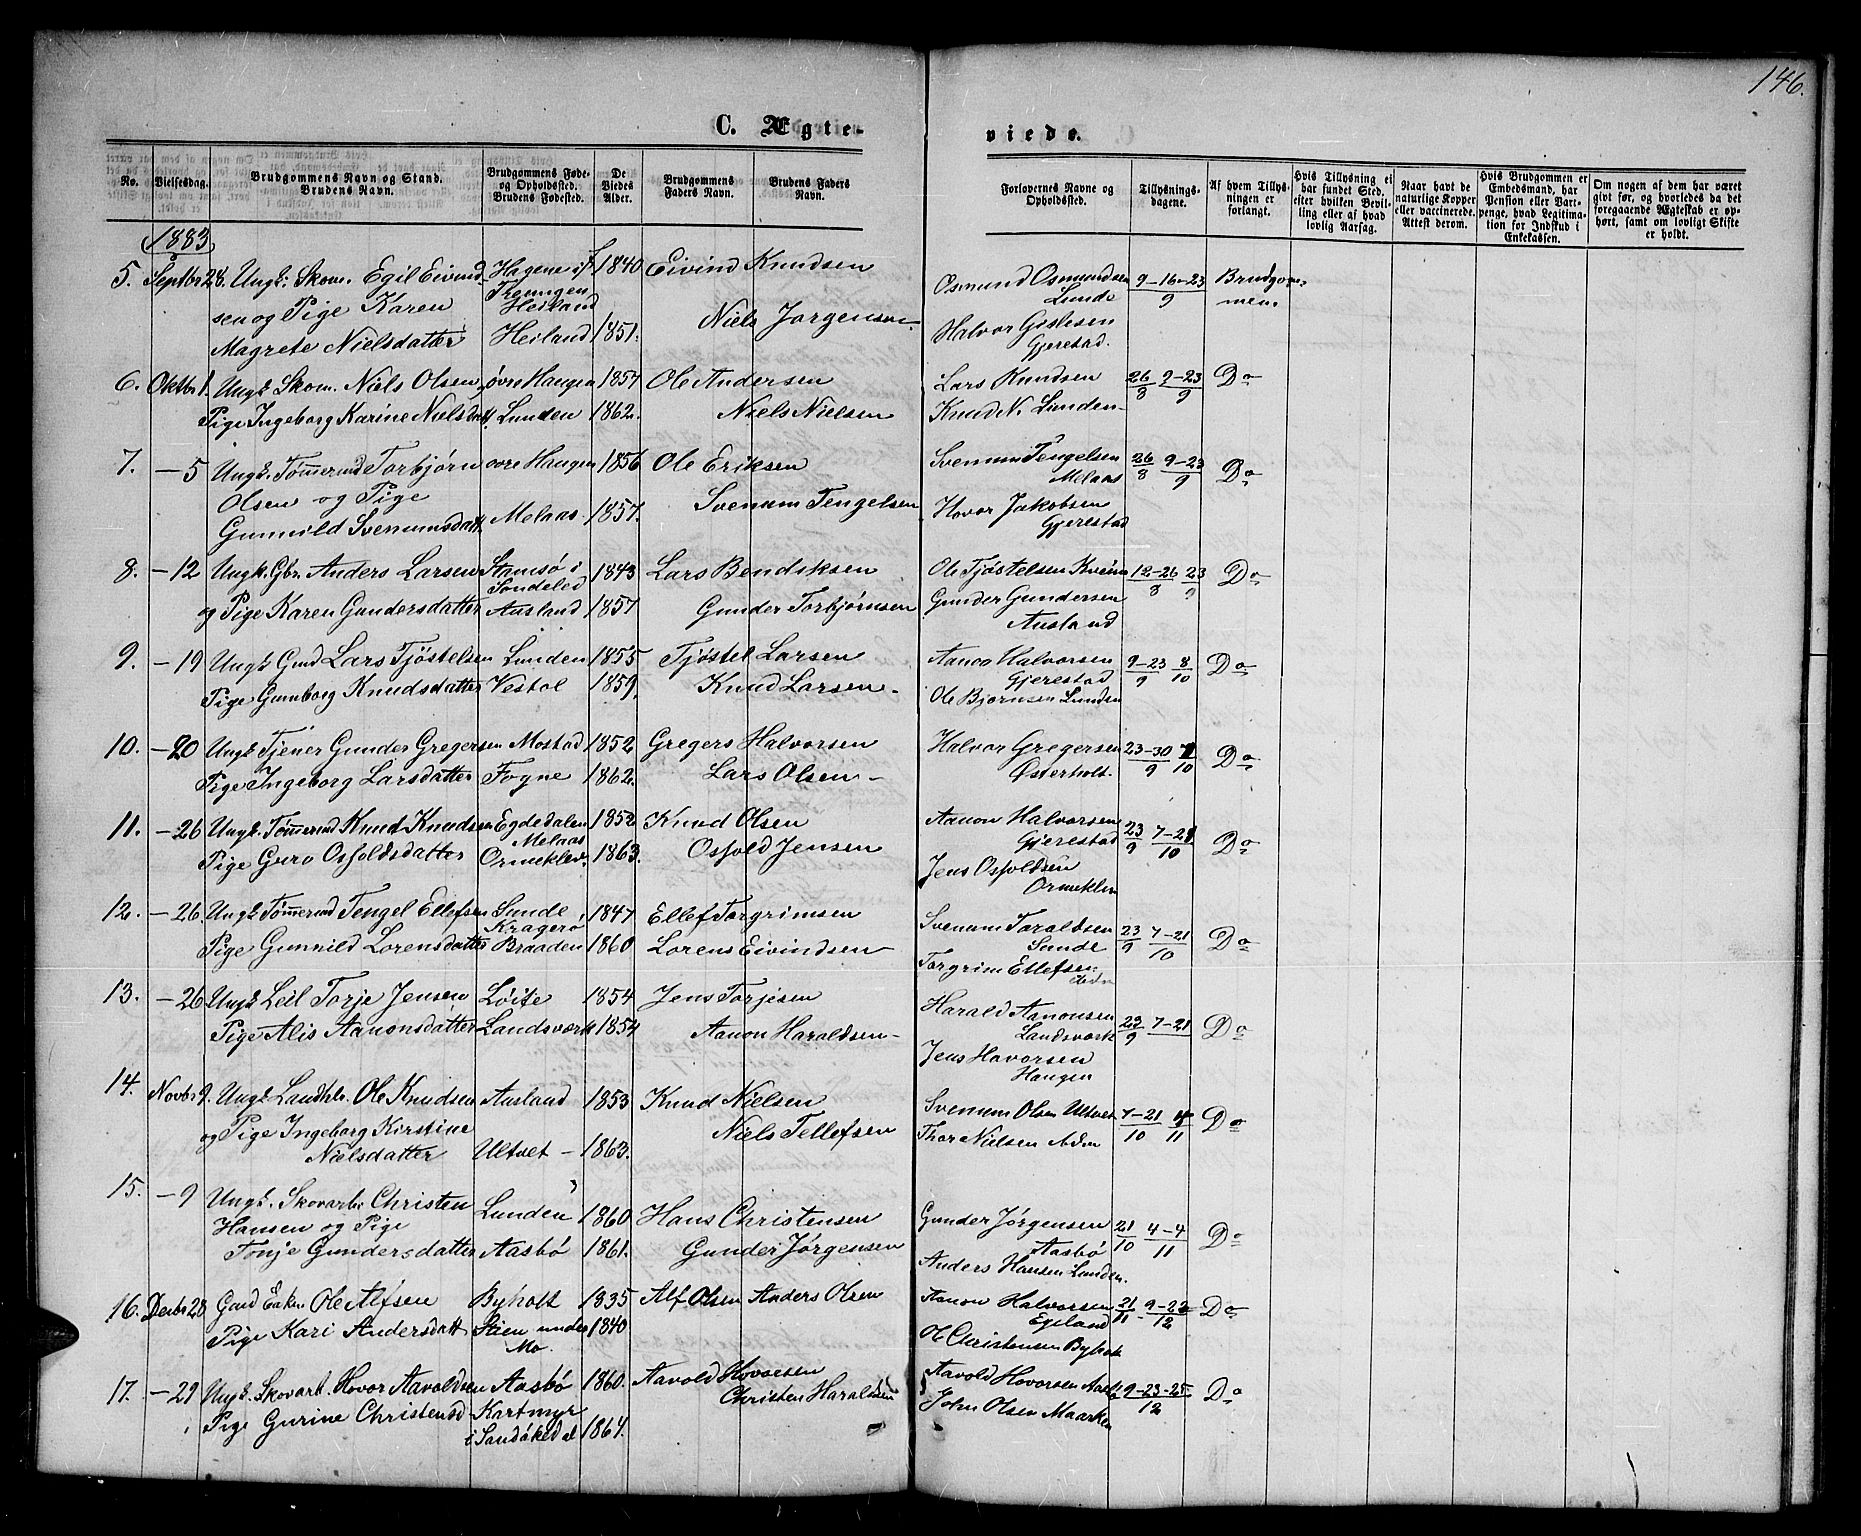 146.
C. Ægte-
viede.
No.
Vielsesdag.
Brudgommens Navn og Stand.
Brudens Navn.
Brudgommens Føde-
og Opholdssted.
Brudens Fødested.
De
Viedes
Alder.
Brudgommens
Faders Navn.
Brudens Faders
Navn.
Forlovernes Navne og
Opholdssted.
Tillysnings-
dagene.
Af hvem Tillys-
ningen er
forlangt.
Hvis Tillysning ei
har fundet Sted,
efter hvilken Bevil-
ling eller af hvad
lovlig Aarsag.
Naar havt de
naturlige Kopper
eller vaccinerede.
Attest derom.
Hvis Brudgommen er
Embedsmand, har
Pension eller Vart-
penge, hvad Legitima-
tion for Indskud i
Enkekassen.
Om nogen af dem har været
givt før, og hvorledes da det
foregaaende Ægteskab er op-
hørt, samt om lovligt Skifte
er holdt.
1883
5. Septbr 28. Ungk: Skom. Egil Eivind- Hagene i 1840 Eivind Knudsen Osmund Osmundsen 9-16-23 Brudgom-
sen og Pige Karen Treungen Lunde 9 men
Heiland
Magrete Nielsdatter Heiland 1851. Niels Jørgensen Halvor Gislesen
Gjerestad.
6. Oktbr 1. Ungk. Skom. Niels Olsen, øvre Haugen 1857 Ole Andersen Lars Knudsen 26/8 9-23/9 Do
Pige Ingeborg Karine Nielsdatt. Lunden 1862. Niels Nielsen Knud N. Lunden
7. -5 Ungk. Tømmermd Torbjørn øvre Haugen 1856 Ole Eriksen Svenum Tengelsen 26/8 9-23/9 Do
Olsen og Pige Melaas
Gunnild Svenumsdatt. Melaas 1857. Svenum Tengelsen Hovor Jakobsen
Gjerestad
8. -12 Ungk. Gbr. Anders Larsen Stamsø i 1843 Lars Bendiksen Ole Tjøstelsen 12-26/8 23/9 Do
Søndeled
og Pige Karen Gundersdatter Ausland 1857 Gunder Torbjørnsen Gunder Gundersen
Ausland
9. -19 Ungk. Gmd Lars Tjøstelsen Lunden 1855 Tjøstel Larsen Aanon Halvorsen 9-23/9 8/10 Do
Gjerestad
Pige Gunborg Knudsdatter Vestøl 1859. Knud Larsen Ole Bjørnsen Lunden
10. -20 Ungk. Tjener Gunder Gregersen Mostad 1852 Gregers Halvorsen Halvor Gregersen 23-30/9 7/10 Do
Pige Ingeborg Larsdatter Fogne 1862. Lars Olsen Østerholt.
11. -26 Ungk. Tømmermd Knud Knudsen Egdedalen 1852 Knud Olsen Aanon Halvorsen 23/9 7-21/10 Do
Melaas Gjerestad
Pige Guro Osfoldsdatter Ormeklev. 1863. Osfold Jensen Jens Osfoldsen
Ormeklev
12. -26. Ungk. Tømmermd Tengel Ellefsen Sunde 1847 Ellef Torgrimsen Svenum Taraldsen 23/9 7-21/10 Do
Kragerø Sunde
Pige Gunnild Lorensdatter Braaden 1860 Lorens Eivindsen Torgrim Ellefsen
13. -26 Ungk. Leil. Torje Jensen Løite 1854 Jens Torjesen Harald Aanonsen 23/9 7-21 Do
Landsverk
Pige Alis Aanonsdatter Landsverk 1854 Aanon Haraldsen Jens Havorsen
Haugen
14. Novbr 9. Ungk. Landhdr. Ole Knudsen Ausland 1853 Knud Nielsen Svenum Olsen Ultvet 7-21/10 4/11 Do
og Pige Ingeborg Kirstine Thor Nielsen
Nielsdatter Ultvet 1863. Niels Tellefsen
15. -9 Ungk. Skovarb. Christen Lunden 1860 Hans Christensen Gunder Jørgensen 21/10 4-4/11 Do
Hansen og Pige Aasbø
Tonje Gundersdatter Aasbø 1861. Gunder Jørgensen Anders Hansen Lunden.
16. Decbr 28 Gmd Enkem. Ole Alfsen Byholt 1835 Alf Olsen Anders Olsen Aanon Halvorsen 21/11 9-23/12 Do
Egeland
Pige Kari Andersdatt. Stien under 1840 Ol Christensen Byholt
Mo.
17. -29 Ungk. Skovarb. Hovor Aavoldsen Aasbø 1860. Aavold Hovorsen Aavold Hovorsen Aasb. 9-23-25/12 Do
Pige Gurine Christensd Kartmyr Christen Haraldsen John Olsen Maarken
i Sandøkedal 1864.